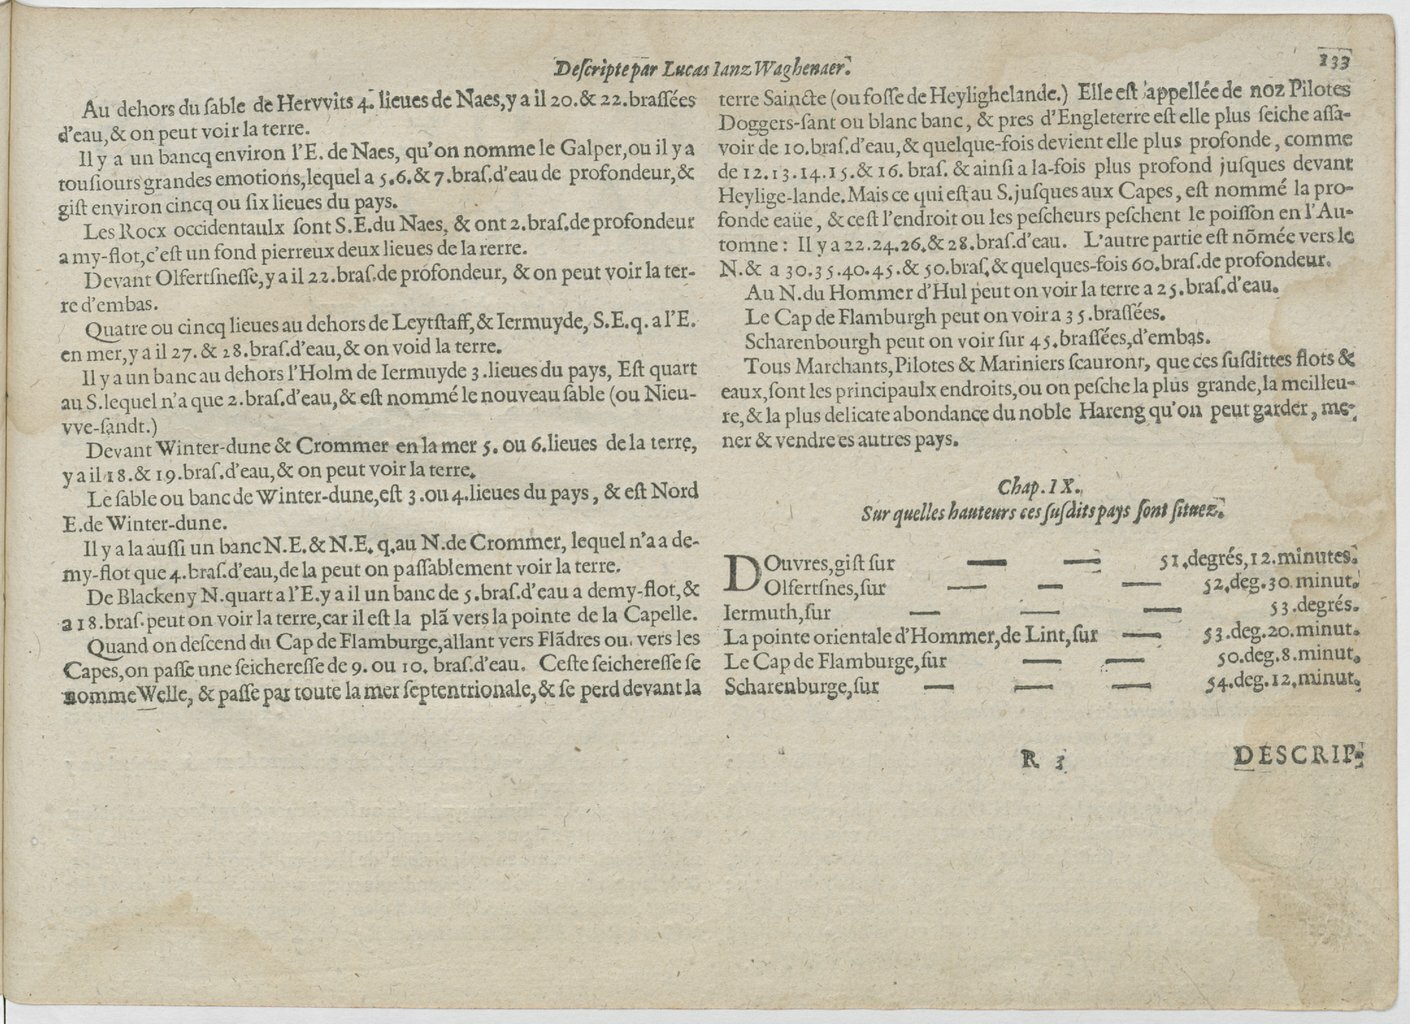 Descripte par Lucas Ianz Waghenaer.
133
Au dehors du ſable de Hervvits 4. lieues de Naes, y a il 20. & 22. braſſées
d'eau, & on peut voir la terre.
Il y a un bancq environ l'E. de Naes, qu'on nomme le Galper, ou il y a
touſiours grandes emotions, lequel a 5.6. & 7. braſ. d'eau de profondeur, &
giſt environ cincq ou ſix lieues du pays.
Les Rocx occidentaulx ſont S.E. du Naes, & ont 2. braſ. de profondeur
a my-flot, c'eſt un fond pierreux deux lieues de la rerre.
Devant Olfertſneſſe, y a il 22. braſ. de profondeur, & on peut voir la ter-
re d'embas.
Quatre ou cincq lieues au dehors de Leytſtaff, & Iermuyde, S.E.q. a l'E.
en mer, y a il 27. & 28. braſ. d'eau, & on void la terre.
Il y a un banc au dehors l'Holm de Iermuyde 3. lieues du pays, Eſt quart
au S. lequel n'a que 2. braſ. d'eau, & eſt nommé le nouveau ſable (ou Nieu-
vve-ſandt.)
Devant Winter-dune & Crommer en la mer 5. ou 6. lieues de la terre,
y a il 18. & 19. braſ. d'eau, & on peut voir la terre.
Le ſable ou banc de Winter-dune, eſt 3. ou 4. lieues du pays, & eſt Nord
E. de Winter-dune.
Il y a la auſſi un banc N.E. & N.E. q. au N. de Crommer, lequel n'a a de-
my-flot que 4. braſ. d'eau, de la peut on paſſablement voir la terre.
De Blackeny N. quart a l'E. y a il un banc de 5. braſ. d'eau a demy-flot, &
a 18. braſ. peut on voir la terre, car il eſt la plã vers la pointe de la Capelle.
Quand on deſcend du Cap de Flamburge, allant vers Flãdres ou vers les
Capes, on paſſe une ſeichereſſe de 9. ou 10. braſ. d'eau. Ceſte ſeichereſſe ſe
nomme Welle, & paſſe par toute la mer ſeptentrionale, & ſe perd devant la
terre Saincte (ou foſſe de Heylighelande.) Elle eſt appellée de noz Pilotes
Doggers-ſant ou blanc banc, & pres d'Engleterre eſt elle plus ſeiche aſſa-
voir de 10. braſ. d'eau, & quelque-fois devient elle plus profonde, comme
de 12.13.14.15. & 16. braſ. & ainſi a la-fois plus profond juſques devant
Heylige-lande. Mais ce qui eſt au S. juſques aux Capes, eſt nommé la pro-
fonde eaüe, & ceſt l'endroit ou les peſcheurs peſchent le poiſſon en l'Au-
tomne: Il y a 22.24.26. & 28. braſ. d'eau. L'autre partie eſt nõmée vers le
N. & a 30.35.40.45. & 50. braſ. & quelques-fois 60. braſ. de profondeur.
Au N. du Hommer d'Hul peut on voir la terre a 25. braſ. d'eau.
Le Cap de Flamburgh peut on voir a 35. braſſées.
Scharenbourgh peut on voir ſur 45. braſſées, d'embas.
Tous Marchants, Pilotes & Mariniers ſcauront, que ces ſuſdittes flots &
eaux, ſont les principaulx endroits, ou on peſche la plus grande, la meilleu-
re, & la plus delicate abondance du noble Hareng qu'on peut garder, me-
ner & vendre es autres pays.
Chap. IX.
Sur quelles hauteurs ces ſuſdits pays ſont ſituez.
DOuvres, giſt ſur — — 51. degrés, 12. minutes.
Olfertſnes, ſur — — — 52. deg. 30. minut.
Iermuth, ſur — — — 53. degrés.
La pointe orientale d'Hommer, de Lint, ſur — 53. deg. 20. minut.
Le Cap de Flamburge, ſur — — 50. deg. 8. minut.
Scharenburge, ſur — — — 54. deg. 12. minut.
R 3
DESCRIP-